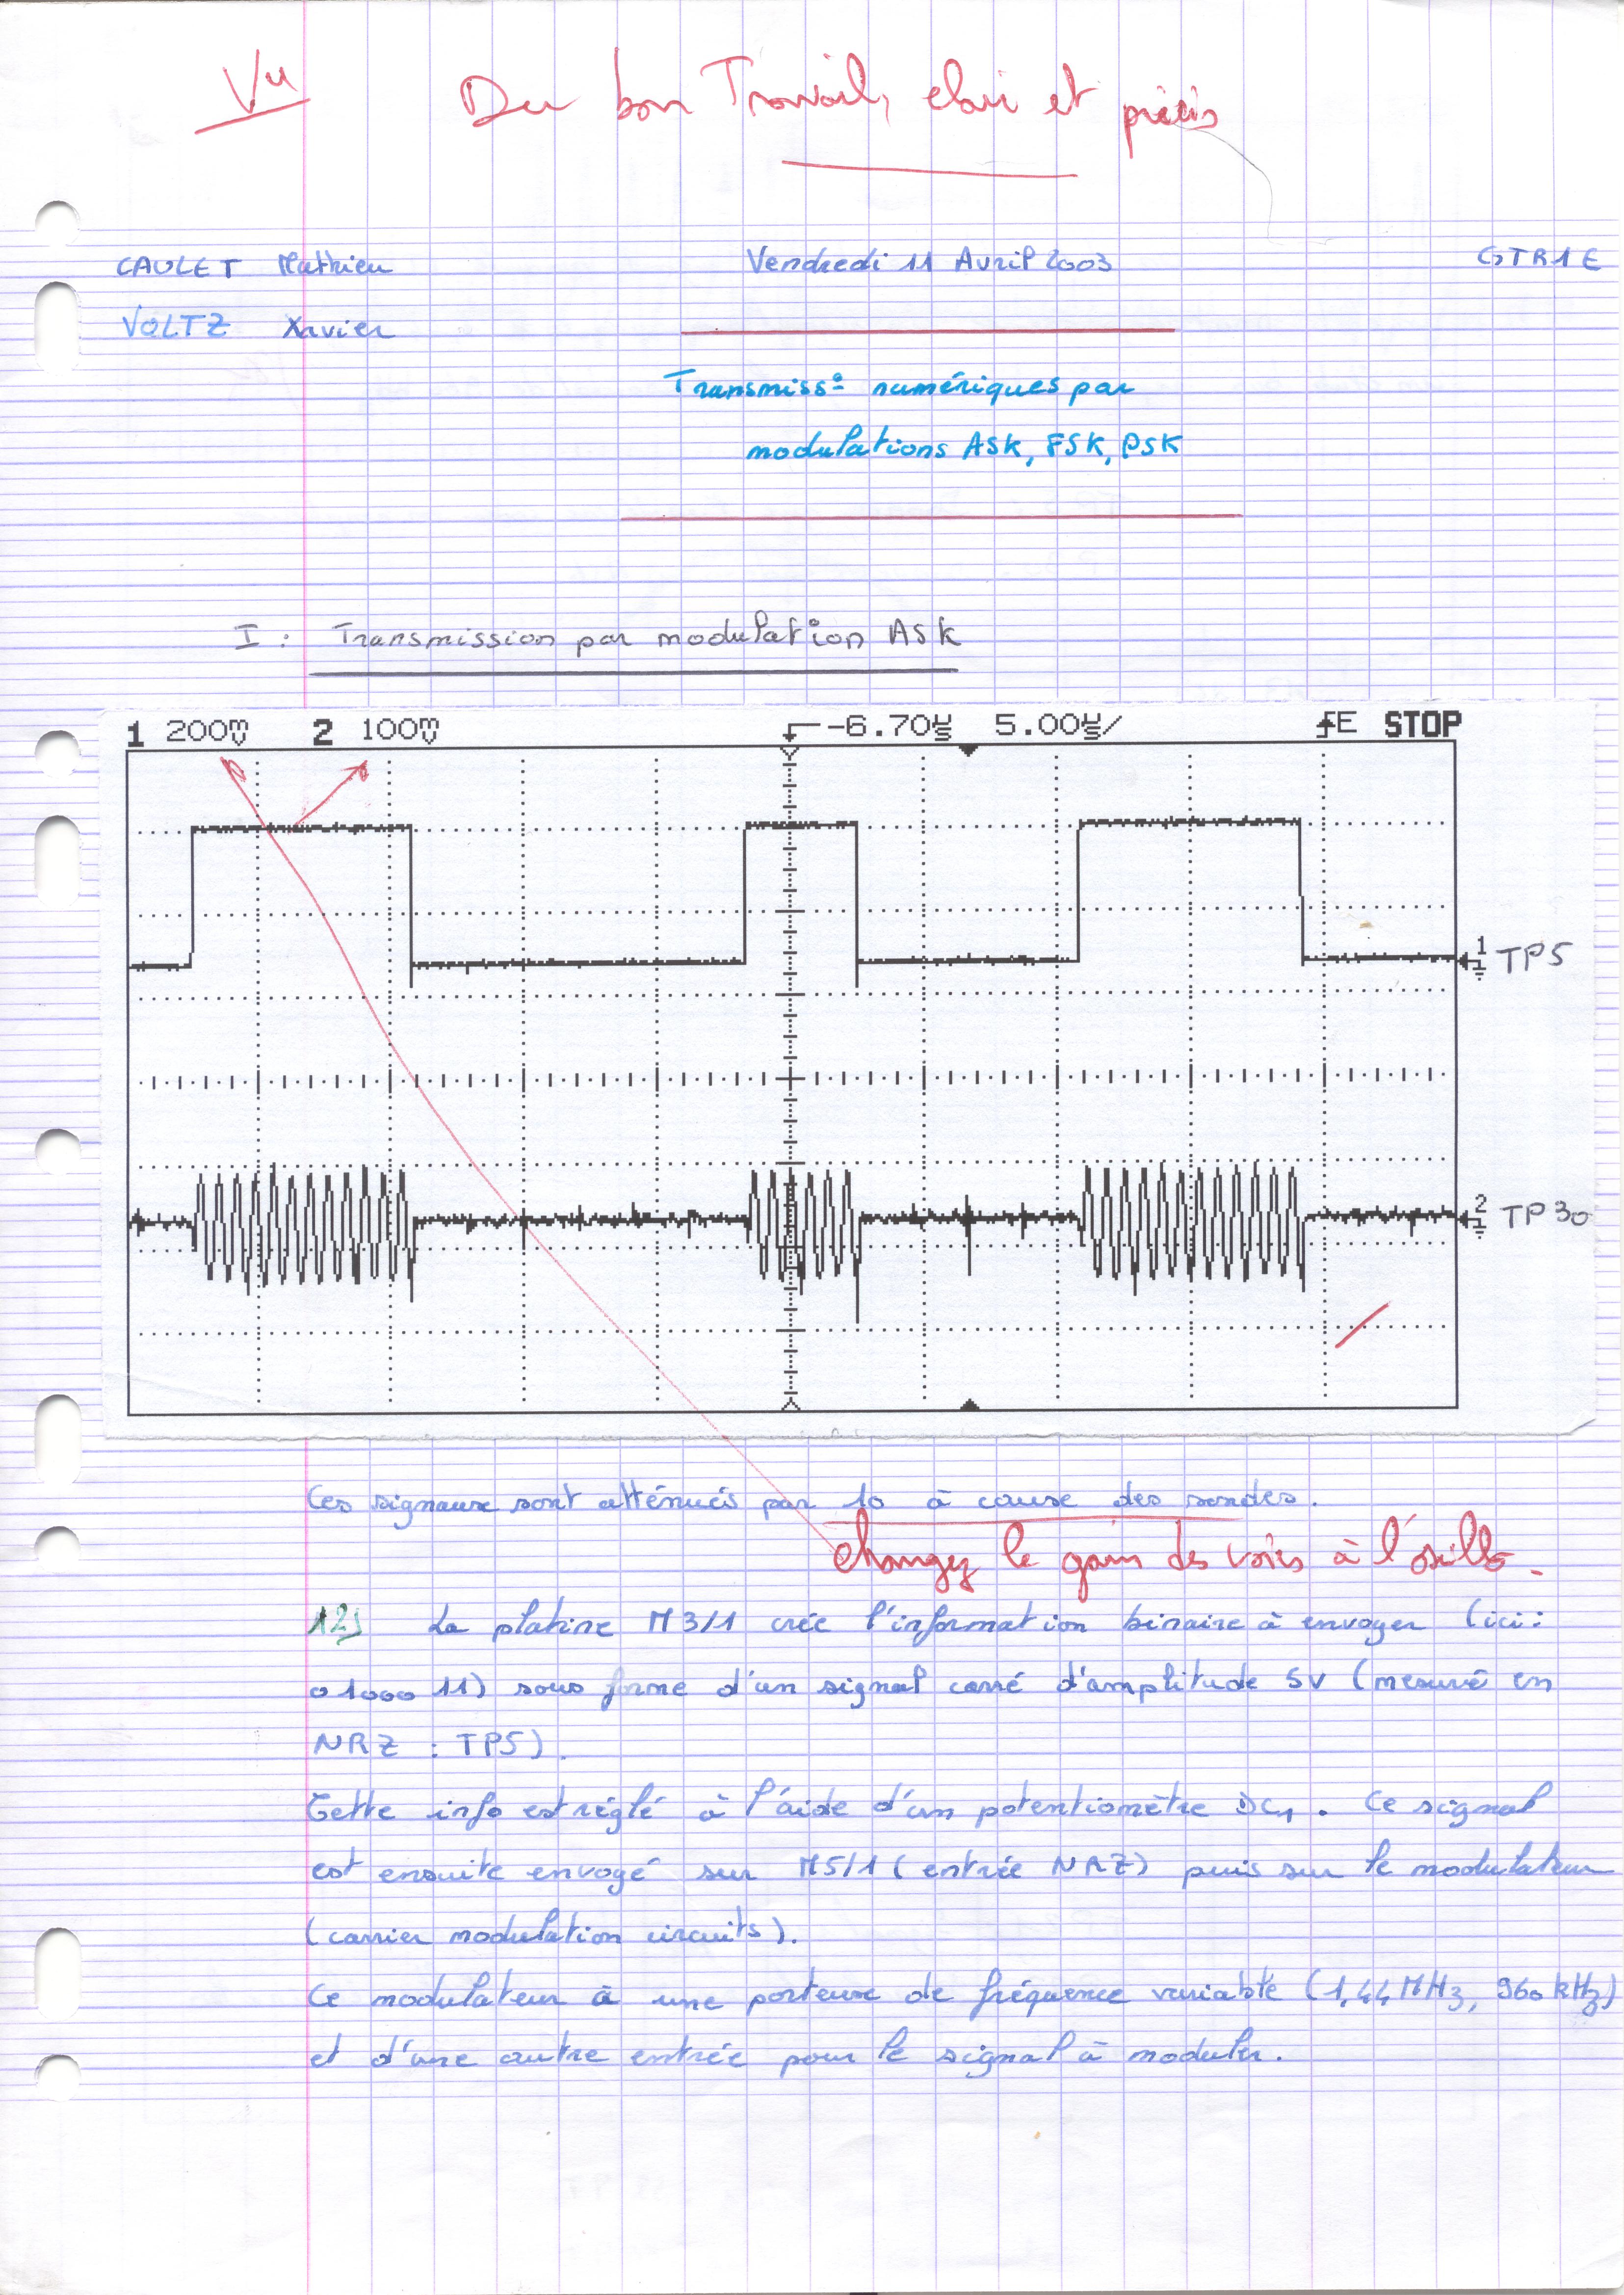 Vu Du bon Travail, clair et précis
CAULET Mathieu Vendredi 11 Avril 2003 GTR1E
VOLTZ Xavier
Transmiss° numériques par
modulations ASK, FSK, PSK
I : Transmission par modulation ASK
1 200mV 2 100mV -6.70µs 5.00µs/ E STOP
1 TP5
2 TP30
Ces signaux sont atténués par 10 à cause des sondes.
changez le gain des voies à l'oscillo.
12) La platine M3/1 crée l'information binaire à envoyer (ici :
0100011) sous forme d'un signal carré d'amplitude 5V (mesuré en
NRZ : TP5).
Cette info est réglé à l'aide d'un potentiomètre DC1. Ce signal
est ensuite envoyé sur M5/1 (entrée NRZ) puis sur le modulateur
(carrier modulation circuits).
Ce modulateur à une porteuse de fréquence variable (1,44MHz, 960kHz)
et d'une autre entrée pour le signal à moduler.